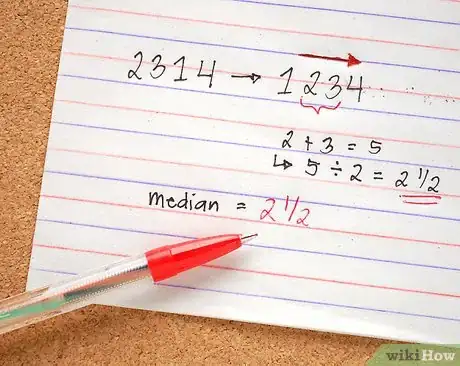 2314 → 1234
2 + 3 = 5
↳ 5 ÷ 2 = 2 1/2
median = 2 1/2
wikiHow